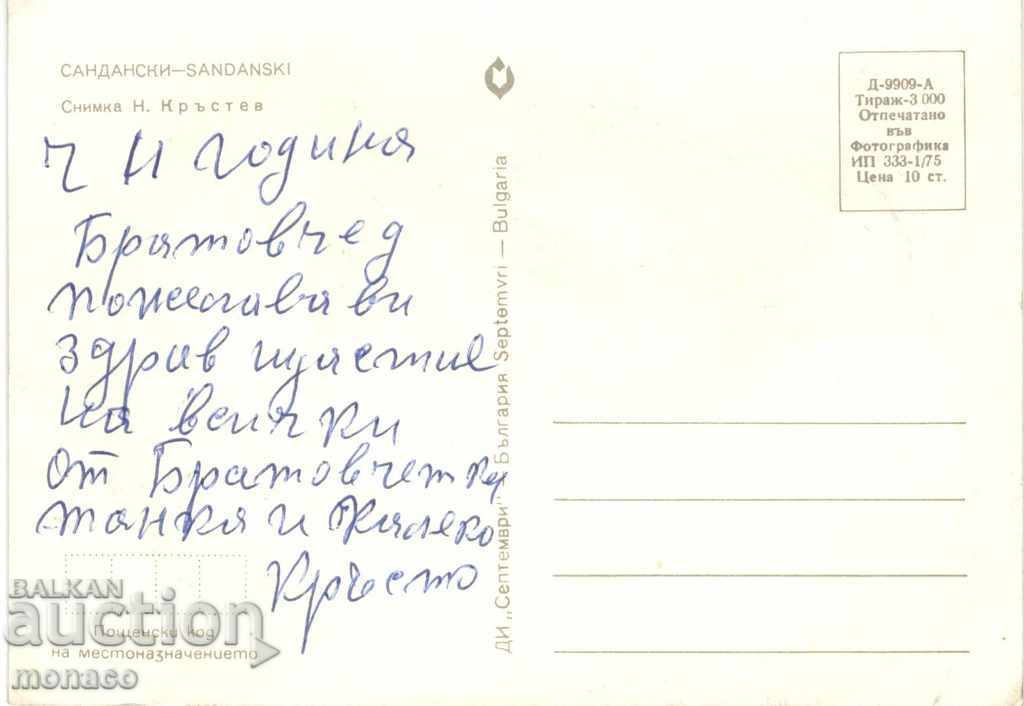 САНДАНСКИ—SANDANSKI
Снимка Н. Кръстев
Ч Н година
Братовчед
пожелава ви
здрав щастие
на всички
от Братовчетка
танка и Калеко
Кръсто
Пощенски код
на местоназначението
ДИ „Септември" България Septemvri — Bulgaria
Д-9909-А
Тираж-3 000
Отпечатано
във
Фотографика
ИП 333-1/75
Цена 10 ст.
BALKAN
auction
monaco